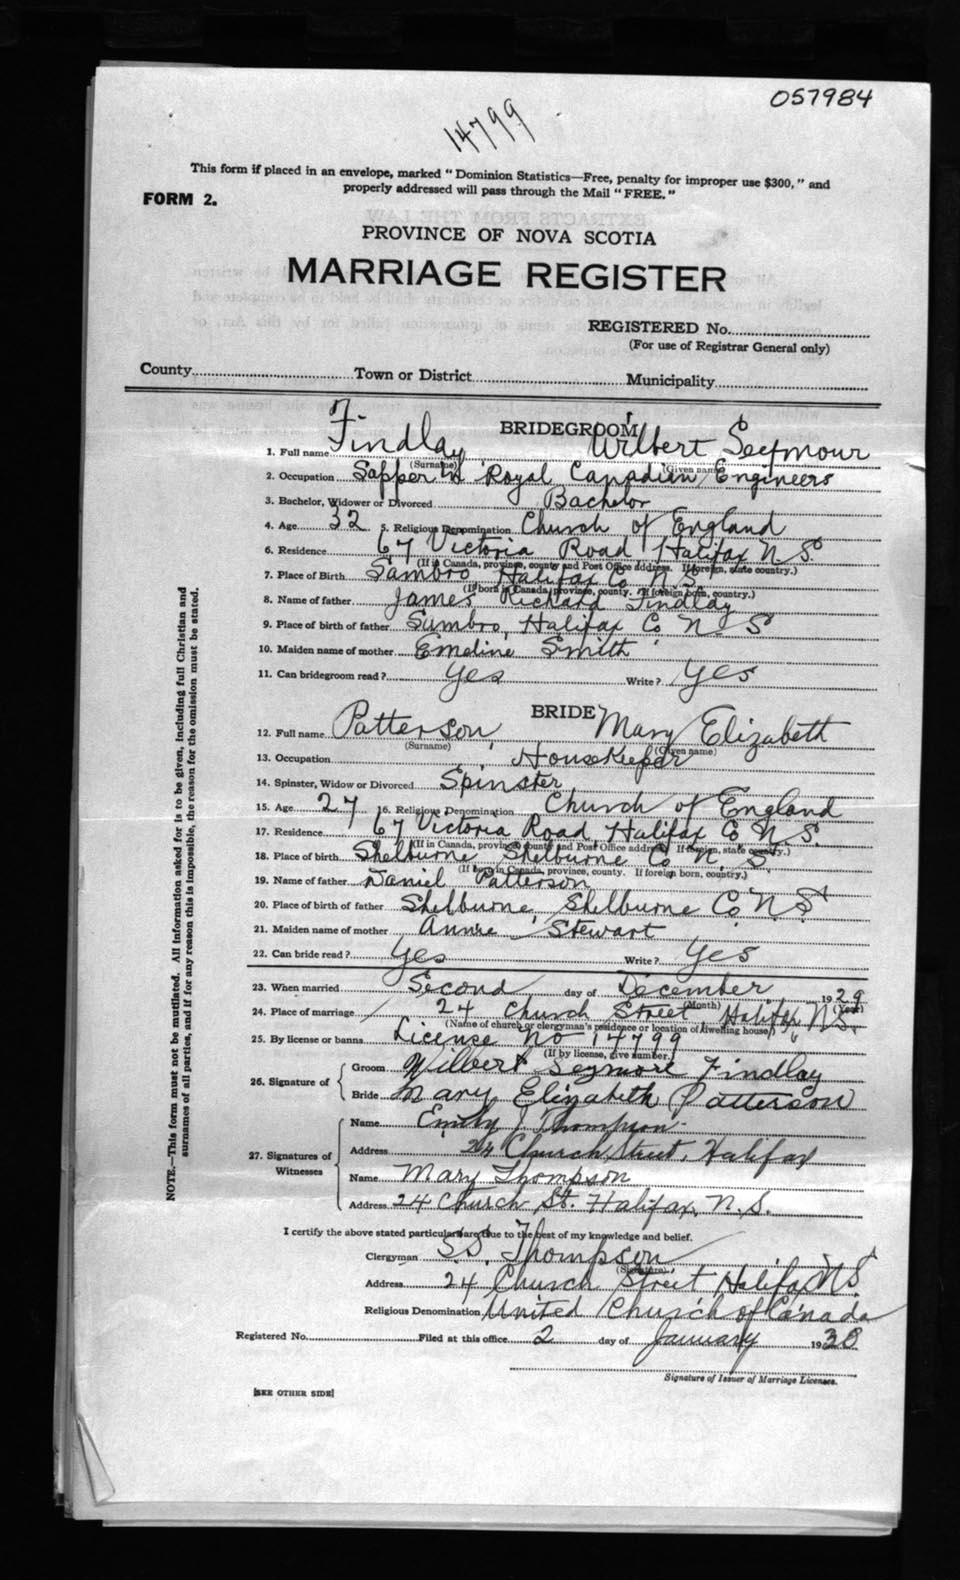 057984
14799
This form if placed in an envelope, marked "Dominion Statistics—Free, penalty for improper use $300," and
properly addressed will pass through the Mail "FREE."
FORM 2.
PROVINCE OF NOVA SCOTIA
MARRIAGE REGISTER
REGISTERED No.
(For use of Registrar General only)
County Town or District Municipality
BRIDEGROOM
1. Full name Findlay, Wilbert Seymour
(Surname) (Given name)
2. Occupation Sapper in Royal Canadian Engineers
3. Bachelor, Widower or Divorced Bachelor
4. Age 32 5. Religious Denomination Church of England
6. Residence 67 Victoria Road Halifax N.S.
(If in Canada, province, county and Post Office address. If foreign, state country.)
7. Place of Birth Sambro, Halifax Co. N.S.
(If born in Canada, province, county. If foreign born, country.)
8. Name of father James Richard Findlay
9. Place of birth of father Sambro, Halifax Co N S
10. Maiden name of mother Emeline Smith
11. Can bridegroom read? Yes Write? Yes
BRIDE
12. Full name Patterson, Mary Elizabeth
(Surname) (Given name)
13. Occupation Housekeeper
14. Spinster, Widow or Divorced Spinster
15. Age 27 16. Religious Denomination Church of England
17. Residence 67 Victoria Road, Halifax Co N.S.
(If in Canada, province, county and Post Office address. If foreign, state country.)
18. Place of birth Shelburne Shelburne Co N.S.
(If born in Canada, province, county. If foreign born, country.)
19. Name of father Daniel Patterson
20. Place of birth of father Shelburne, Shelburne Co N.S.
21. Maiden name of mother Annie Stewart
22. Can bride read? Yes Write? Yes
23. When married Second day of December 1929
(Month) (Year)
24. Place of marriage 24 Church Street, Halifax N.S.
(Name of church or clergyman's residence or location of dwelling house)
25. By license or banns License No 14799
(If by license, give number.)
26. Signature of Groom Wilbert Seymore Findlay
Bride Mary Elizabeth Patterson
27. Signatures of Witnesses Name Emily J. Thompson
Address 24 Church Street, Halifax
Name Mary Thompson
Address 24 Church St. Halifax, N.S.
I certify the above stated particulars are true to the best of my knowledge and belief.
Clergyman Thompson
(Signature)
Address 24 Church Street Halifax N.S.
Religious Denomination United Church of Canada
Registered No. Filed at this office 2 day of January 1930
Signature of Issuer of Marriage Licenses.
[SEE OTHER SIDE]
NOTE.—This form must not be mutilated. All information asked for is to be given, including full Christian and
surnames of all parties, and if for any reason this is impossible, the reason for the omission must be stated.